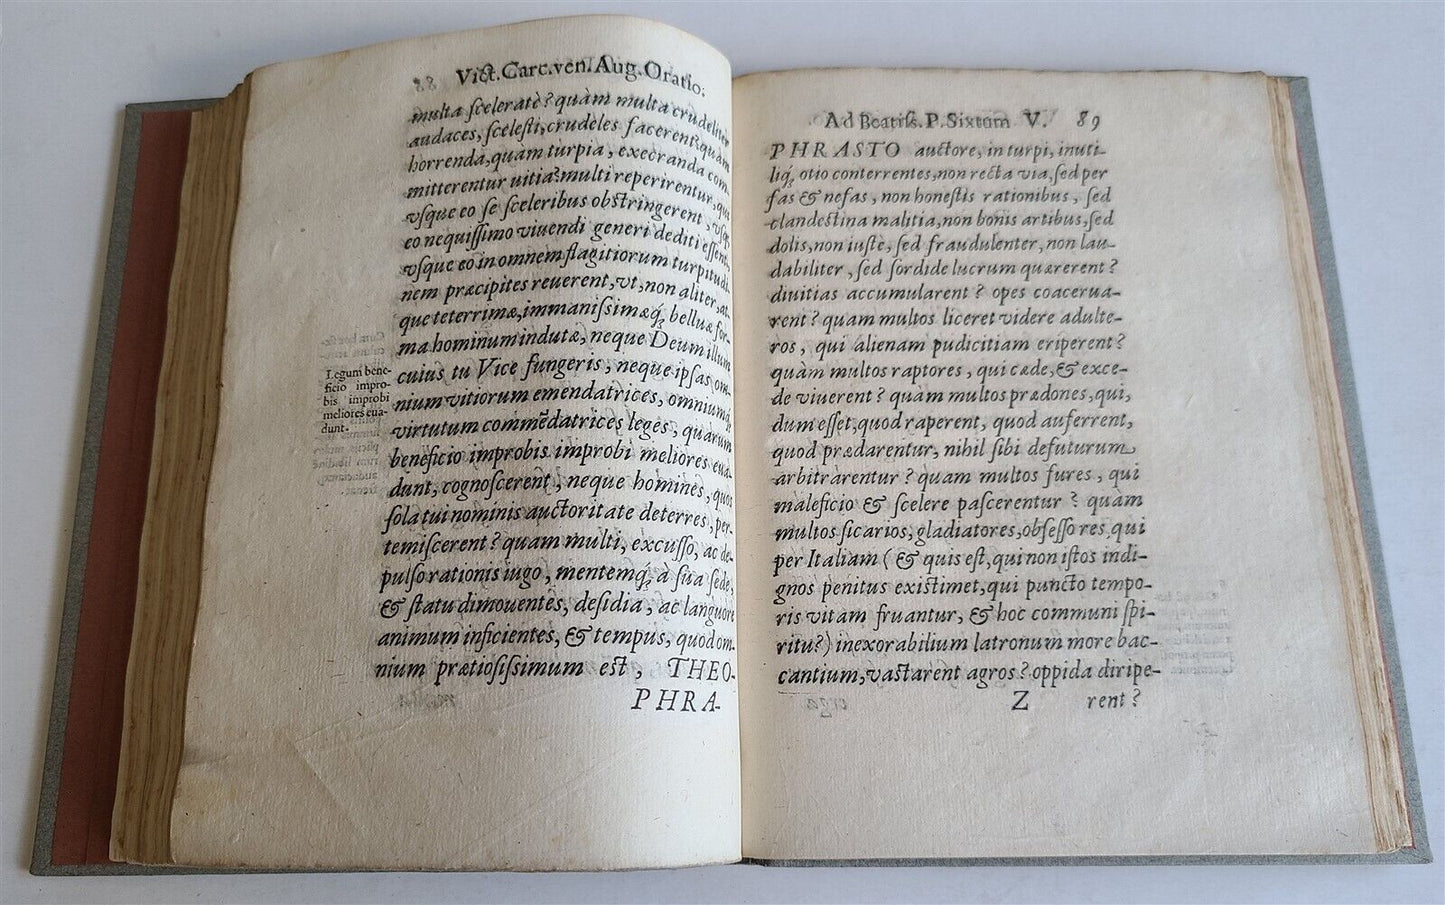 Vict. Carc. ven. Aug. Oratio.
multa sceleratè? quàm multa crudeliter
audaces, scelesti, crudeles facerent? quàm
horrenda, quam turpia, execranda com-
mitterentur uitia? multi reperirentur, qui
vsque eo se sceleribus obstringerent, vsq́;
eo nequissimo viuendi generi dediti essent,
vsque eo in omnem flagitiorum turpitudi-
nem præcipites reuerent, vt, non aliter, at-
que teterrimæ, immanissimæq́; belluæ for-
ma hominum indutæ, neque Deum illum
cuius tu Vice fungeris, neque ipsas om-
nium vitiorum emendatrices, omniumq́;
virtutum commẽdatrices leges, quarum
beneficio improbis improbi meliores eua-
dunt, cognoscerent, neque homines, quos
sola tui nominis auctoritate deterres, per-
temiscerent? quam multi, excusso, ac de-
pulso rationis iugo, mentemq́; à sua sede,
& statu dimouentes, desidia, ac languore
animum inficientes, & tempus, quod om-
nium prætiosissimum est, THEO-
PHRA-
Legum bene-
ficio impro-
bis improbi
meliores eua-
dunt.
Ad Beatiss. P. Sixtum V. 89
PHRASTO auctore, in turpi, inuti-
liq́; otio conterrentes, non recta via, sed per
fas & nefas, non honestis rationibus, sed
clandestina malitia, non bonis artibus, sed
dolis, non iustè, sed fraudulenter, non lau-
dabiliter, sed sordide lucrum quærerent?
diuitias accumularent? opes coacerua-
rent? quam multos liceret videre adulte-
ros, qui alienam pudicitiam eriperent?
quàm multos raptores, qui cæde, & exce-
de viuerent? quàm multos prædones, qui,
dum esset, quod raperent, quod auferrent,
quod prædarentur, nihil sibi defuturum
arbitrarentur? quam multos fures, qui
maleficio & scelere pascerentur? quàm
multos sicarios, gladiatores, obsessores, qui
per Italiam (& quis est, qui non istos indi-
gnos penitus existimet, qui puncto tempo-
ris vitam fruantur, & hoc communi spi-
ritu?) inexorabilium latronum more bac-
cantium, vastarent agros? oppida diripe-
Z rent?